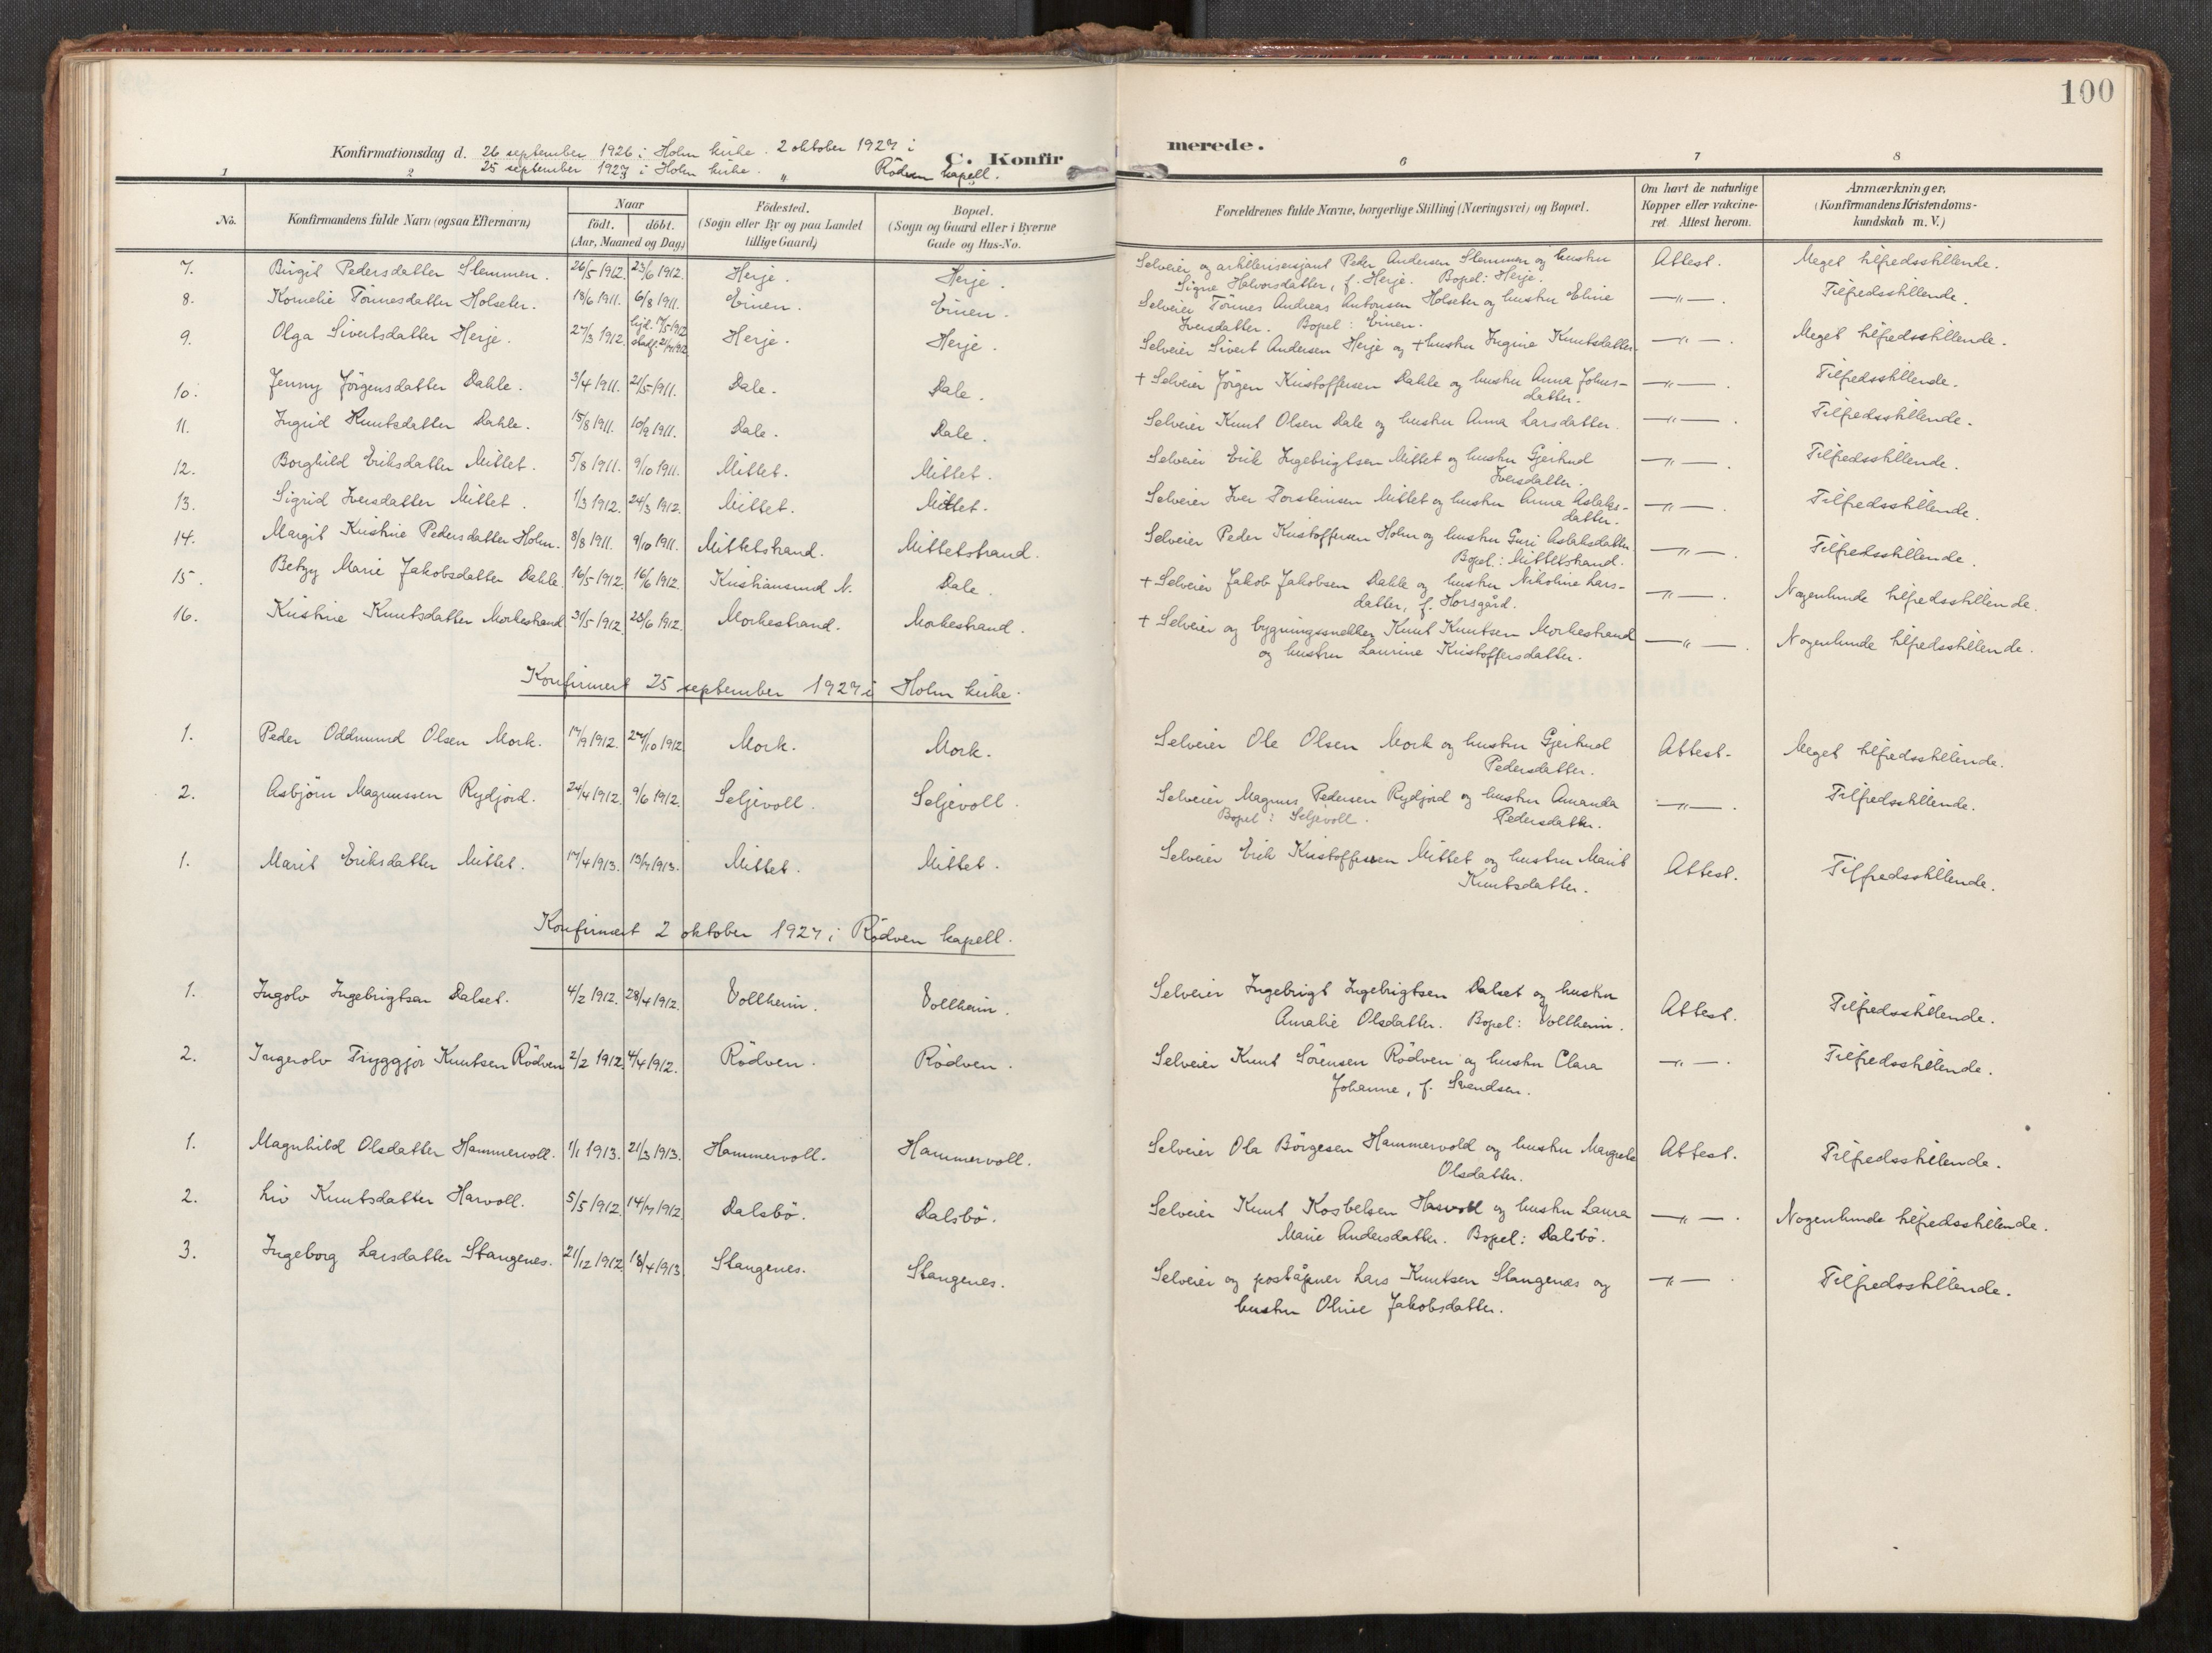 100
Konfirmationsdag d. 26 september 1926 i Holm kirke. 2 oktober 1927 i
25 september 1927 i Holm kirke. " Rödven kapell.
C. Konfirmerede.
1 2 6 7 8
No. Konfirmandens fulde Navn (ogsaa Efternavn) Naar födt. döbt. (Aar, Maaned og Dag.) Födested. (Sogn eller By og paa Landet tillige Gaard) Bopæl. (Sogn og Gaard eller i Byerne Gade og Hus-No. Forældrenes fulde Navne, borgerlige Stilling (Næringsvei) og Bopæl. Om havt de naturlige Kopper eller vakcineret. Attest herom. Anmærkninger. (Konfirmandens Kristendomskundskab m. V.)
7. Birgit Pedersdatter Stemmen. 26/5 1912. 23/6 1912. Herje. Herje. Selveier og artillerisersjant Peder Andersen Stemmen og hustru Attest. Meget tilfredsstillende.
Signe Halvorsdatter, f. Herje. Bopel: Herje.
8. Kornelie Tönnesdatter Holseter. 18/6 1911. 6/8 1911. Einen. Einen. Selveier Tönnes Andreas Antonsen Holseter og hustru Eline —"—. Tilfredsstillende.
Iversdatter. Bopel: Einen.
9. Olga Sivertsdatter Herje. 27/3 1912. hjd. 17/5 1912 stadf. 21/7 1912. Herje. Herje. Selveier Sivert Andersen Herje og + hustru Ingine Knutsdatter. —"—. Meget tilfredsstillende.
10. Jenny Jörgensdatter Dahle. 3/4 1911. 21/5 1911. Dale. Dale. + Selveier Jörgen Kristoffersen Dahle og hustru Anna Johns- —"—. Tilfredsstillende.
datter.
11. Ingrid Knutsdatter Dahle. 15/8 1911. 10/9 1911. Dale. Dale. Selveier Knut Olsen Dale og hustru Anna Larsdatter. —"—. Tilfredsstillende.
12. Borghild Eriksdatter Mittet. 5/8 1911. 9/10 1911. Mittet. Mittet. Selveier Erik Ingebrigtsen Mittet og hustru Gjertrud —"—. Tilfredsstillende.
Iversdatter.
13. Sigrid Iversdatter Mittet. 1/3 1912. 24/3 1912. Mittet. Mittet. Selveier Iver Torsteinsen Mittet og hustru Anna Aslaks- —"—. Tilfredsstillende.
datter.
14. Margit Kristine Pedersdatter Holm. 8/8 1911. 9/10 1911. Mittetstrand. Mittetstrand. Selveier Peder Kristoffersen Holm og hustru Guri Aslaksdatter. —"—. Tilfredsstillende.
Bopel: Mittetstrand.
15. Betzy Marie Jakobsdatter Dahle. 16/5 1912. 16/6 1912. Kristiansund N. Dale. + Selveier Jakob Jakobsen Dahle og hustru Nikoline Lars- —"—. Nogenlunde tilfredsstillende.
datter, f. Horsgård.
16. Kristine Knutsdatter Morkestrand 31/5 1912. 23/6 1912. Morkestrand. Morkestrand. + Selveier og bygningssnekker Knut Knutsen Morkestrand —"—. Nogenlunde tilfredsstillende.
og hustru Laurine Kristoffersdatter.
Konfirmert 25 september 1927 i Holm kirke.
1. Peder Oddmund Olsen Mork. 17/9 1912. 27/10 1912. Mork. Mork. Selveier Ole Olsen Mork og hustru Gjertrud Attest. Meget tilfredsstillende.
Pedersdatter.
2. Asbjörn Magnussen Rydjord. 24/4 1912. 9/6 1912. Seljevoll. Seljevoll. Selveier Magnus Pedersen Rydjord og hustru Amanda —"—. Tilfredsstillende.
Bopel: Seljevoll. Pedersdatter.
1. Marit Eriksdatter Mittet. 17/4 1913. 13/7 1913. Mittet. Mittet. Selveier Erik Kristoffersen Mittet og hustru Marit Attest. Tilfredsstillende.
Knutsdatter.
Konfirmert 2 oktober 1927 i Rödven kapell.
1. Ingolv Ingebrigtsen Dalset. 4/2 1912. 28/4 1912. Vollheim. Vollheim. Selveier Ingebrigt Ingebrigtsen Dalset og hustru Attest. Tilfredsstillende.
Amalie Olsdatter. Bopel: Vollheim.
2. Ingerolv Tryggjor Knutsen Rödven 2/2 1912. 4/4 1912. Rödven. Rödven. Selveier Knut Sörensen Rödven og hustru Clara —"—. Tilfredsstillende.
Johanne, f. Svendsen.
1. Magnhild Olsdatter Hammervoll. 1/1 1913. 21/3 1913. Hammervoll. Hammervoll. Selveier Ola Börgesen Hammervold og hustru Margrete Attest. Tilfredsstillende.
Olsdatter.
2. Liv Knutsdatter Harvoll. 5/5 1912. 14/7 1912. Dalsbö. Dalsbö. Selveier Knut Hasvoll og hustru Laura —"—. Nogenlunde tilfredsstillende.
Marie Andersdatter. Bopel: Dalsbö.
3. Ingeborg Larsdatter Stangenes. 21/12 1912. 18/4 1913. Stangenes. Stangenes. Selveier og poståpner Lars Knutsen Stangenes og —"—. Tilfredsstillende.
hustru Oline Jakobsdatter.